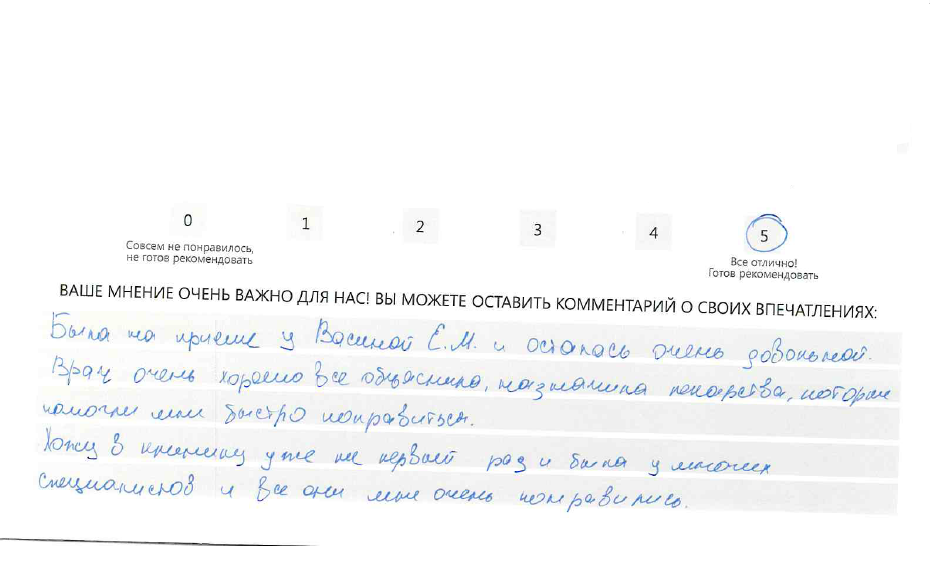 0 1 2 3 4 5
Совсем не понравилось,
не готов рекомендовать
Все отлично!
Готов рекомендовать
ВАШЕ МНЕНИЕ ОЧЕНЬ ВАЖНО ДЛЯ НАС! ВЫ МОЖЕТЕ ОСТАВИТЬ КОММЕНТАРИЙ О СВОИХ ВПЕЧАТЛЕНИЯХ:
Была на приеме у Васиной Е.М. и осталась очень довольной.
Врач очень хорошо все объяснила, назначила лекарства, которые
помогли мне быстро поправиться.
Хожу в клинику уже не первый раз и была у многих
специалистов и все они мне очень понравились.